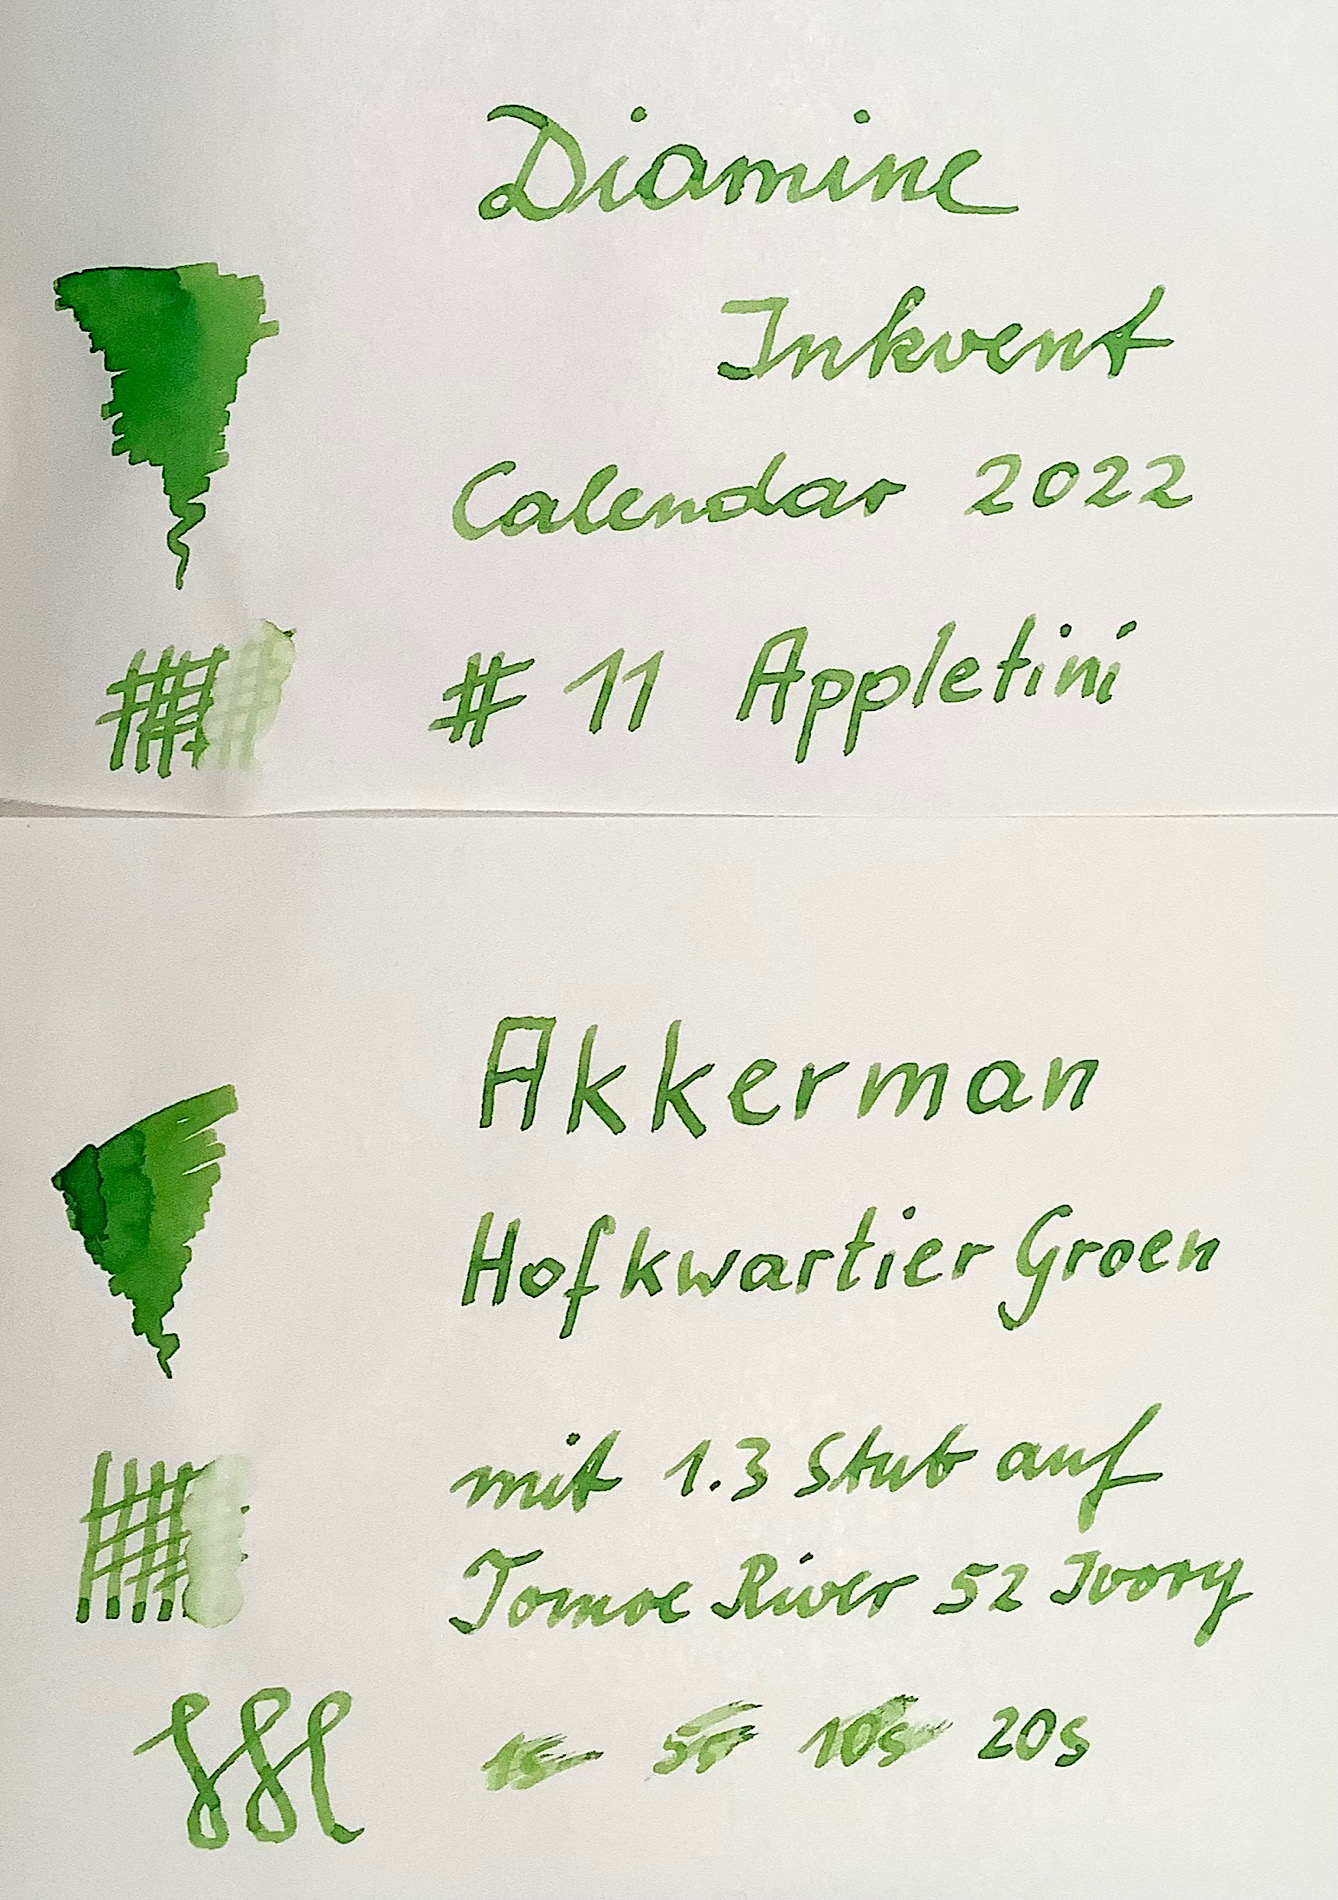 Diamine
Inkvent
Calendar 2022
# 11 Appletini
Akkerman
Hofkwartier Groen
mit 1.3 Stub auf
Tomoe River 52 Ivory
1s 5s 10s 20s